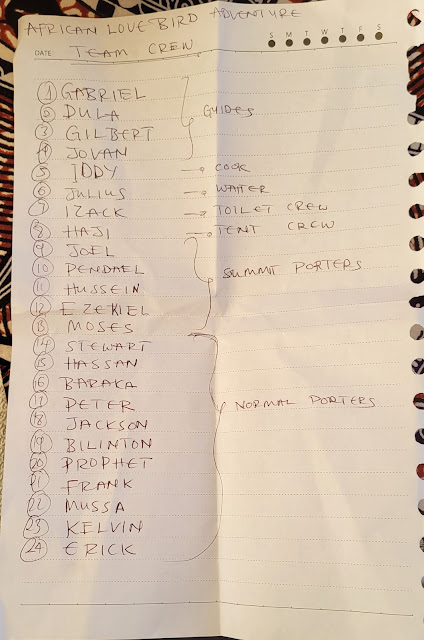 AFRICAN LOVE BIRD ADVENTURE
DATE: TEAM CREW S M T W T F S
1 GABRIEL
2 DULA GUIDES
3 GILBERT
4 JOVAN
5 IDDY → COOK
6 JULIUS → WAITER
7 IZACK → TOILET CREW
8 HAJI → TENT CREW
9 JOEL
10 PENDAEL SUMMIT PORTERS
11 HUSSEIN
12 EZEKIEL
13 MOSES
14 STEWART
15 HASSAN
16 BARAKA
17 PETER NORMAL PORTERS
18 JACKSON
19 BILINTON
20 PROPHET
21 FRANK
22 MUSSA
23 KELVIN
24 ERICK